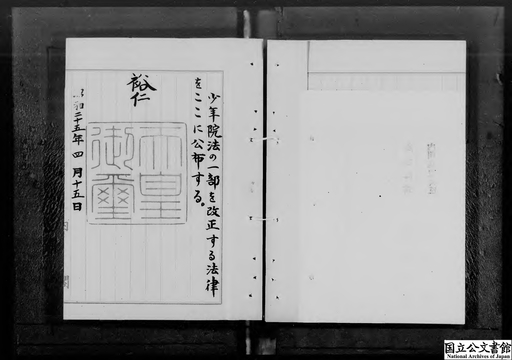 少年院法の一部を改正する法律
をここに公布する。
裕仁
天皇
御璽
昭和二十五年四月十五日
国立公文書館
National Archives of Japan